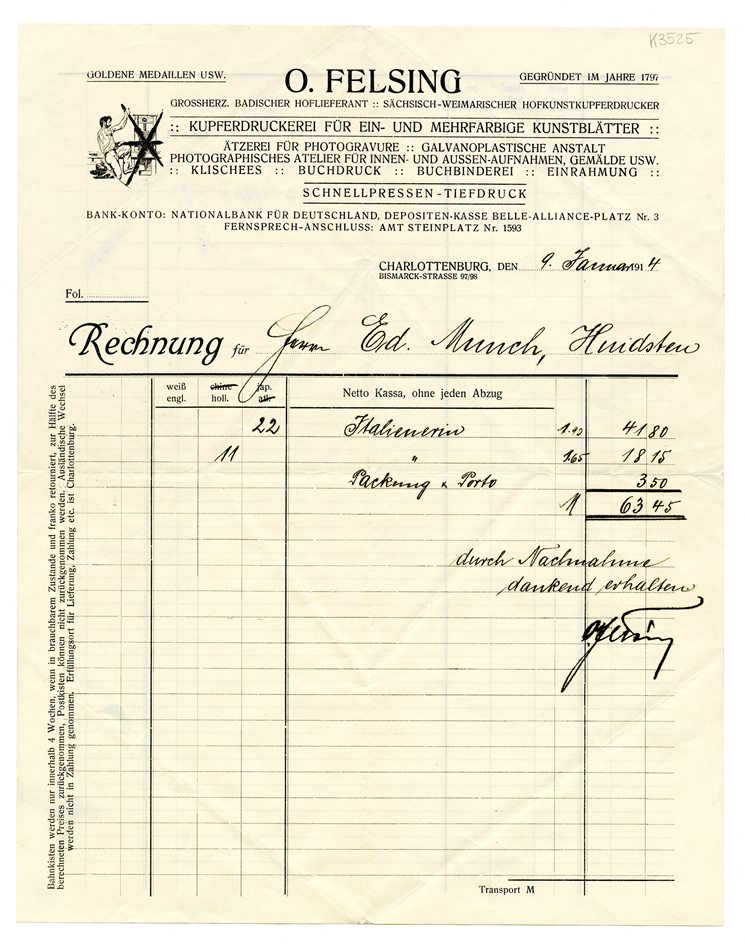 K3525
GOLDENE MEDAILLEN USW.
O. FELSING
GEGRÜNDET IM JAHRE 1797
GROSSHERZ. BADISCHER HOFLIEFERANT :: SÄCHSISCH-WEIMARISCHER HOFKUNSTKUPFERDRUCKER
:: KUPFERDRUCKEREI FÜR EIN- UND MEHRFARBIGE KUNSTBLÄTTER ::
ÄTZEREI FÜR PHOTOGRAVURE :: GALVANOPLASTISCHE ANSTALT
PHOTOGRAPHISCHES ATELIER FÜR INNEN- UND AUSSEN-AUFNAHMEN, GEMÄLDE USW.
:: KLISCHEES :: BUCHDRUCK :: BUCHBINDEREI :: EINRAHMUNG ::
SCHNELLPRESSEN-TIEFDRUCK
BANK-KONTO: NATIONALBANK FÜR DEUTSCHLAND, DEPOSITEN-KASSE BELLE-ALLIANCE-PLATZ Nr. 3
FERNSPRECH-ANSCHLUSS: AMT STEINPLATZ Nr. 1593
CHARLOTTENBURG, DEN 9. Januar 1914
BISMARCK-STRASSE 97/98
Fol.
Rechnung für Herrn Ed. Munch, Hvidsten
weiß engl.
chine holl.
jap. alt.
Netto Kassa, ohne jeden Abzug
22 Italienerin 1.90 41 80
11 " 1.65 18 15
Packung & Porto 3 50
M 63 45
durch Nachnahme
dankend erhalten
O. Felsing
Transport M
Bahnkisten werden nur innerhalb 4 Wochen, wenn in brauchbarem Zustande und franko retourniert, zur Hälfte des
berechneten Preises zurückgenommen, Postkisten können nicht zurückgenommen werden. Ausländische Wechsel
werden nicht in Zahlung genommen. Erfüllungsort für Lieferung, Zahlung etc. ist Charlottenburg.